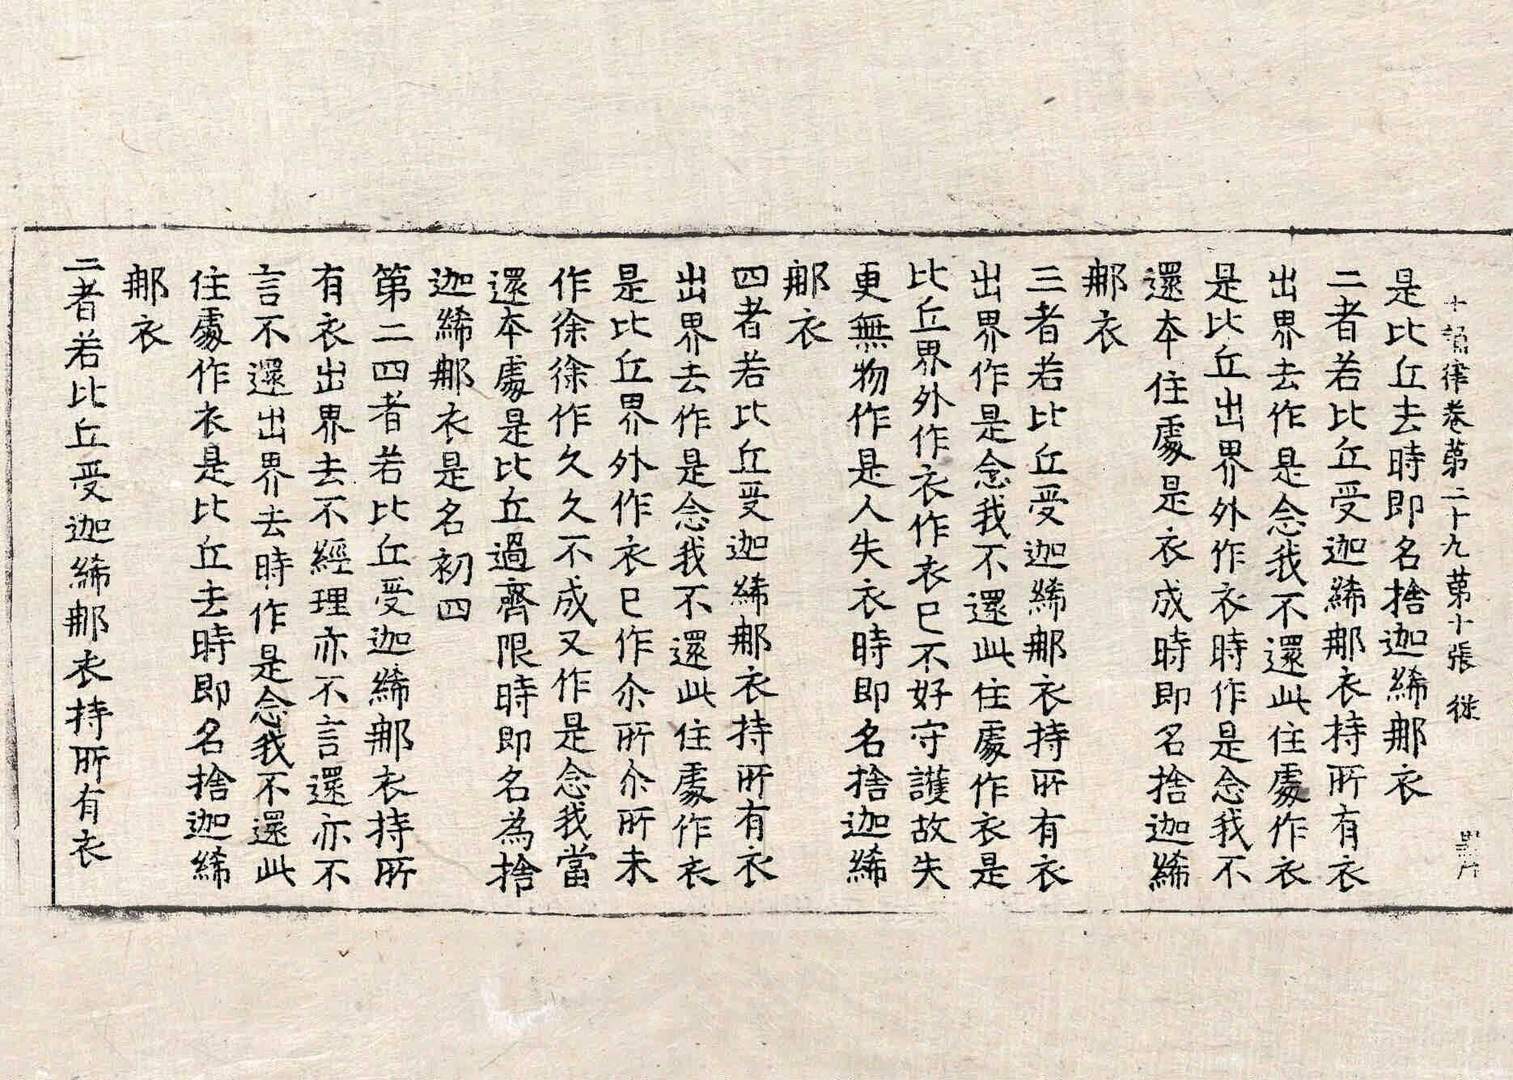 十誦律卷第二十九第十張 從
是比丘去時即名捨迦絺那衣
二者若比丘受迦絺那衣持所有衣
出界去作是念我不還此住處作衣
是比丘出界外作衣時作是念我不
還本住處是衣成時即名捨迦絺
那衣
三者若比丘受迦絺那衣持所有衣
出界作是念我不還此住處作衣是
比丘界外作衣作衣已不好守護故失
更無物作是人失衣時即名捨迦絺
那衣
四者若比丘受迦絺那衣持所有衣
出界去作是念我不還此住處作衣
是比丘界外作衣已作尒所尒所未
作徐徐作久久不成又作是念我當
還本處是比丘過齊限時即名為捨
迦絺那衣是名初四
第二四者若比丘受迦絺那衣持所
有衣出界去不經理亦不言還亦不
言不還出界去時作是念我不還此
住處作衣是比丘去時即名捨迦絺
那衣
二者若比丘受迦絺那衣持所有衣